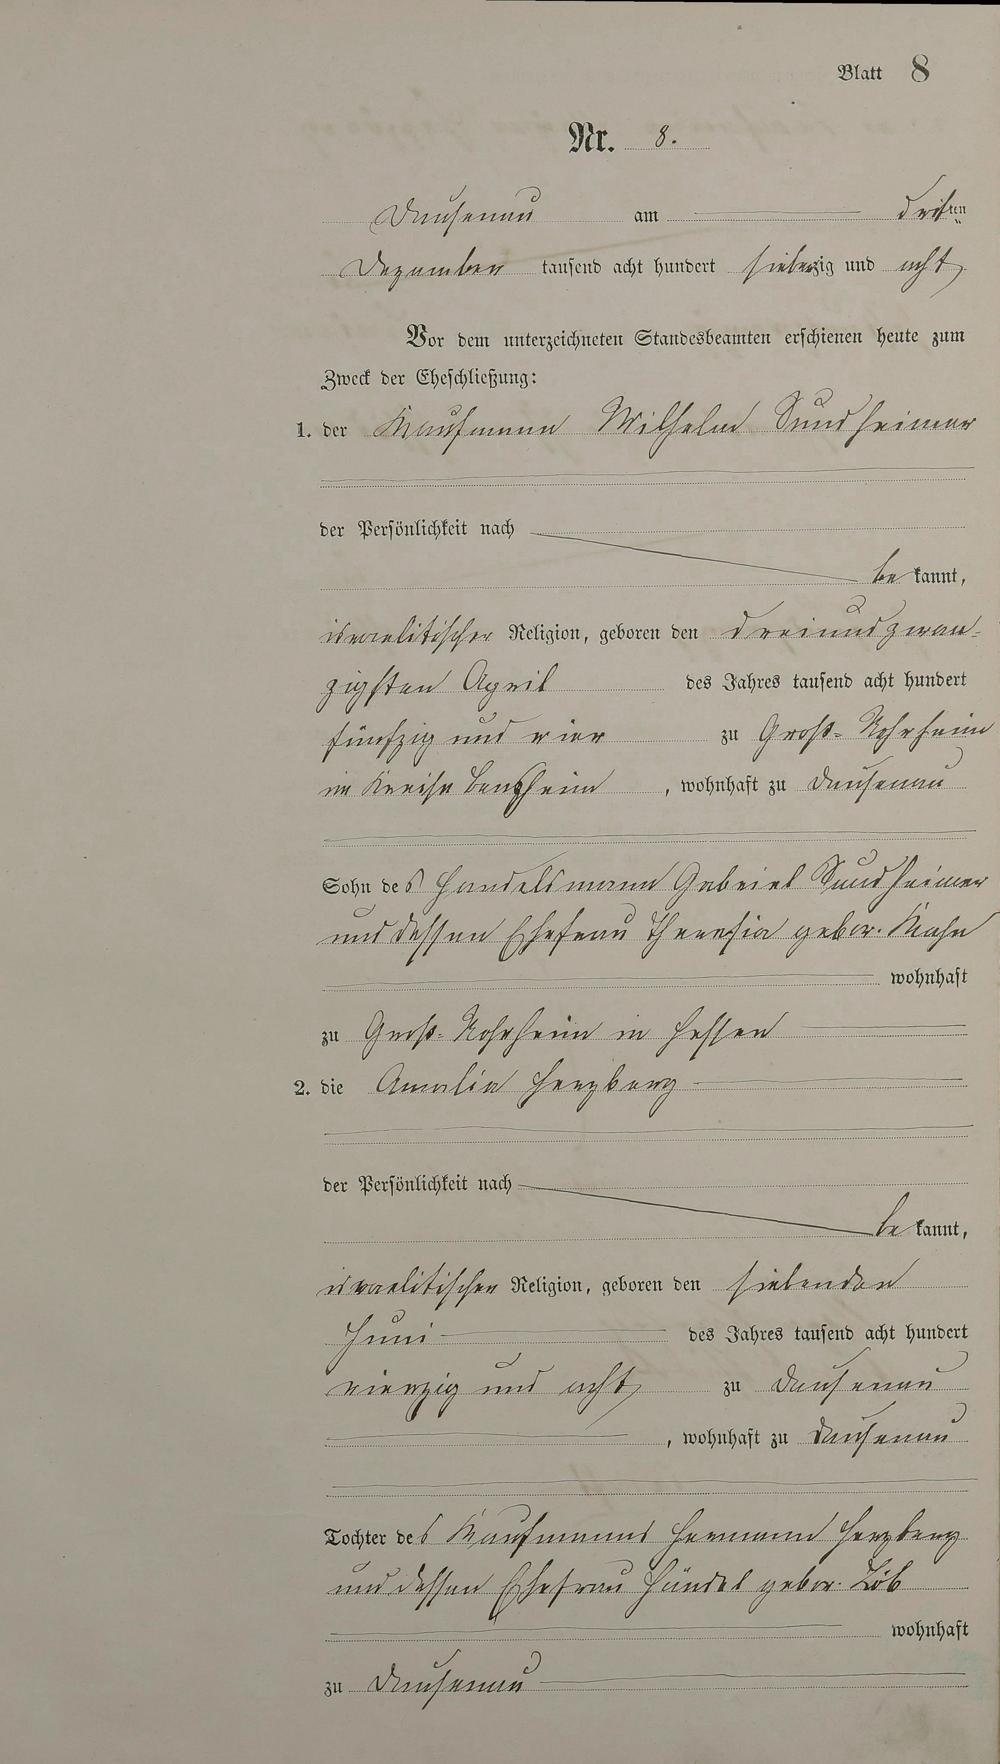 Blatt 8
Nr. 8.
Dausenau am dritten
Dezember tausend acht hundert siebenzig und acht
Vor dem unterzeichneten Standesbeamten erschienen heute zum
Zweck der Eheschließung:
1. der Kaufmann Wilhelm Sundheimer
der Persönlichkeit nach
be kannt,
israelitischer Religion, geboren den dreiundzwan-
zigsten April des Jahres tausend acht hundert
fünfzig und vier zu Groß-Rohrheim
im Kreise Bensheim, wohnhaft zu Dausenau
Sohn des Handelsmann Gabriel Sundheimer
und dessen Ehefrau Theresia gebor. Kahn
wohnhaft
zu Groß-Rohrheim in Hessen
2. die Amalia Herzberg
der Persönlichkeit nach
be kannt,
israelitischen Religion, geboren den siebenden
Juni des Jahres tausend acht hundert
vierzig und acht zu Dausenau
, wohnhaft zu Dausenau
Tochter des Kaufmanns Hermann Herzberg
und dessen Ehefrau Händel gebor. Löb
wohnhaft
zu Dausenau